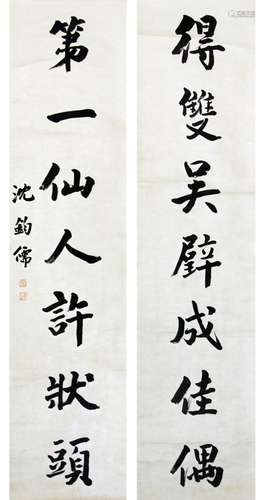 得雙吴壁成佳偶
第一仙人許狀頭
沈鈞儒